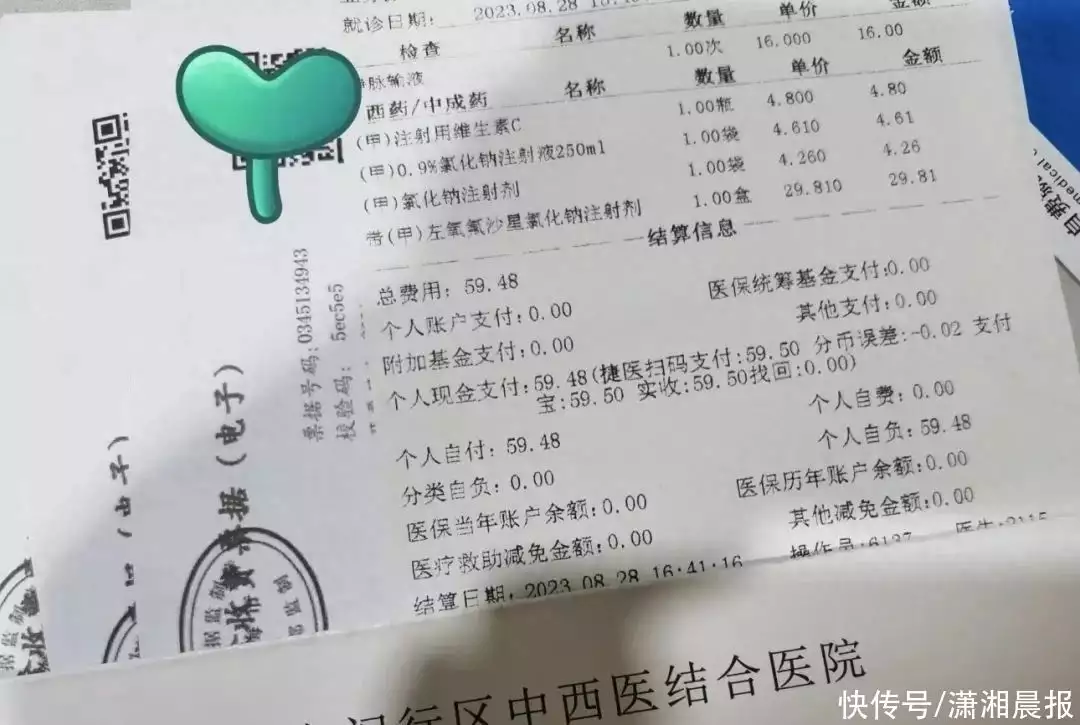 就诊日期: 2023.08.28
检查 名称 数量 单价 金额
脉输液 1.00次 16.000 16.00
西药/中成药 名称 数量 单价 金额
(甲)注射用维生素C 1.00瓶 4.800 4.80
(甲)0.9%氯化钠注射液250ml 1.00袋 4.610 4.61
(甲)氯化钠注射剂 1.00袋 4.260 4.26
带(甲)左氧氟沙星氯化钠注射剂 1.00盒 29.810 29.81
结算信息
总费用: 59.48 医保统筹基金支付:0.00
个人账户支付:0.00 其他支付:0.00
附加基金支付:0.00
个人现金支付:59.48(捷医扫码支付:59.50 分币误差:-0.02 支付
宝:59.50 实收:59.50找回:0.00)
个人自付: 59.48 个人自费: 0.00
分类自负: 0.00 个人自负: 59.48
医保当年账户余额:0.00 医保历年账户余额:0.00
医疗救助减免金额:0.00 其他减免金额:0.00
结算日期: 2023.08.28 16:41:16 操作员:6137 医生:2115
票据号码:0345134943
校验码: 5ec5e5
票据(电子)
自费
medical
闵行区中西医结合医院
快传号/潇湘晨报